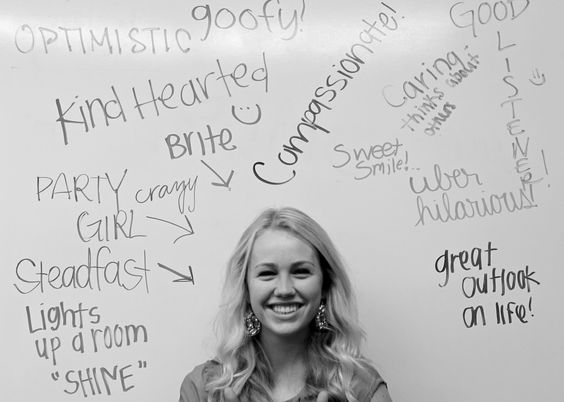 OPTIMISTIC
goofy!
Compassionate!
GOOD
LISTENER!
Caring-
thinks about
others
Kind Hearted
BRITE
Sweet
Smile!..
uber
hilarious!
PARTY
GIRL
crazy
Steadfast
great
outlook
on life!
Lights
up a room
"SHINE"